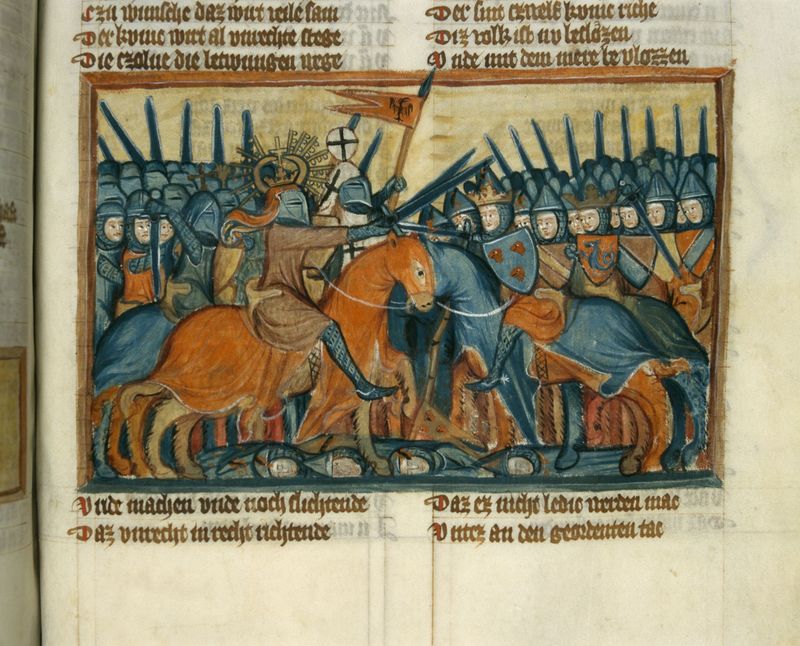 Czu wunsche daz wirt veile sam
Der kvnic wirt al vnrechte stege
Die czolne die betwungen wege
Der sint czwelf kvnic riche
Diz volk ist nv beslozen
Vnde mit dem mere bevlozzen
Vnde machen vnde noch slichtende
Daz vnrecht in recht richtende
Daz ez nicht ledic werden mac
Vntez an den geordenten tac